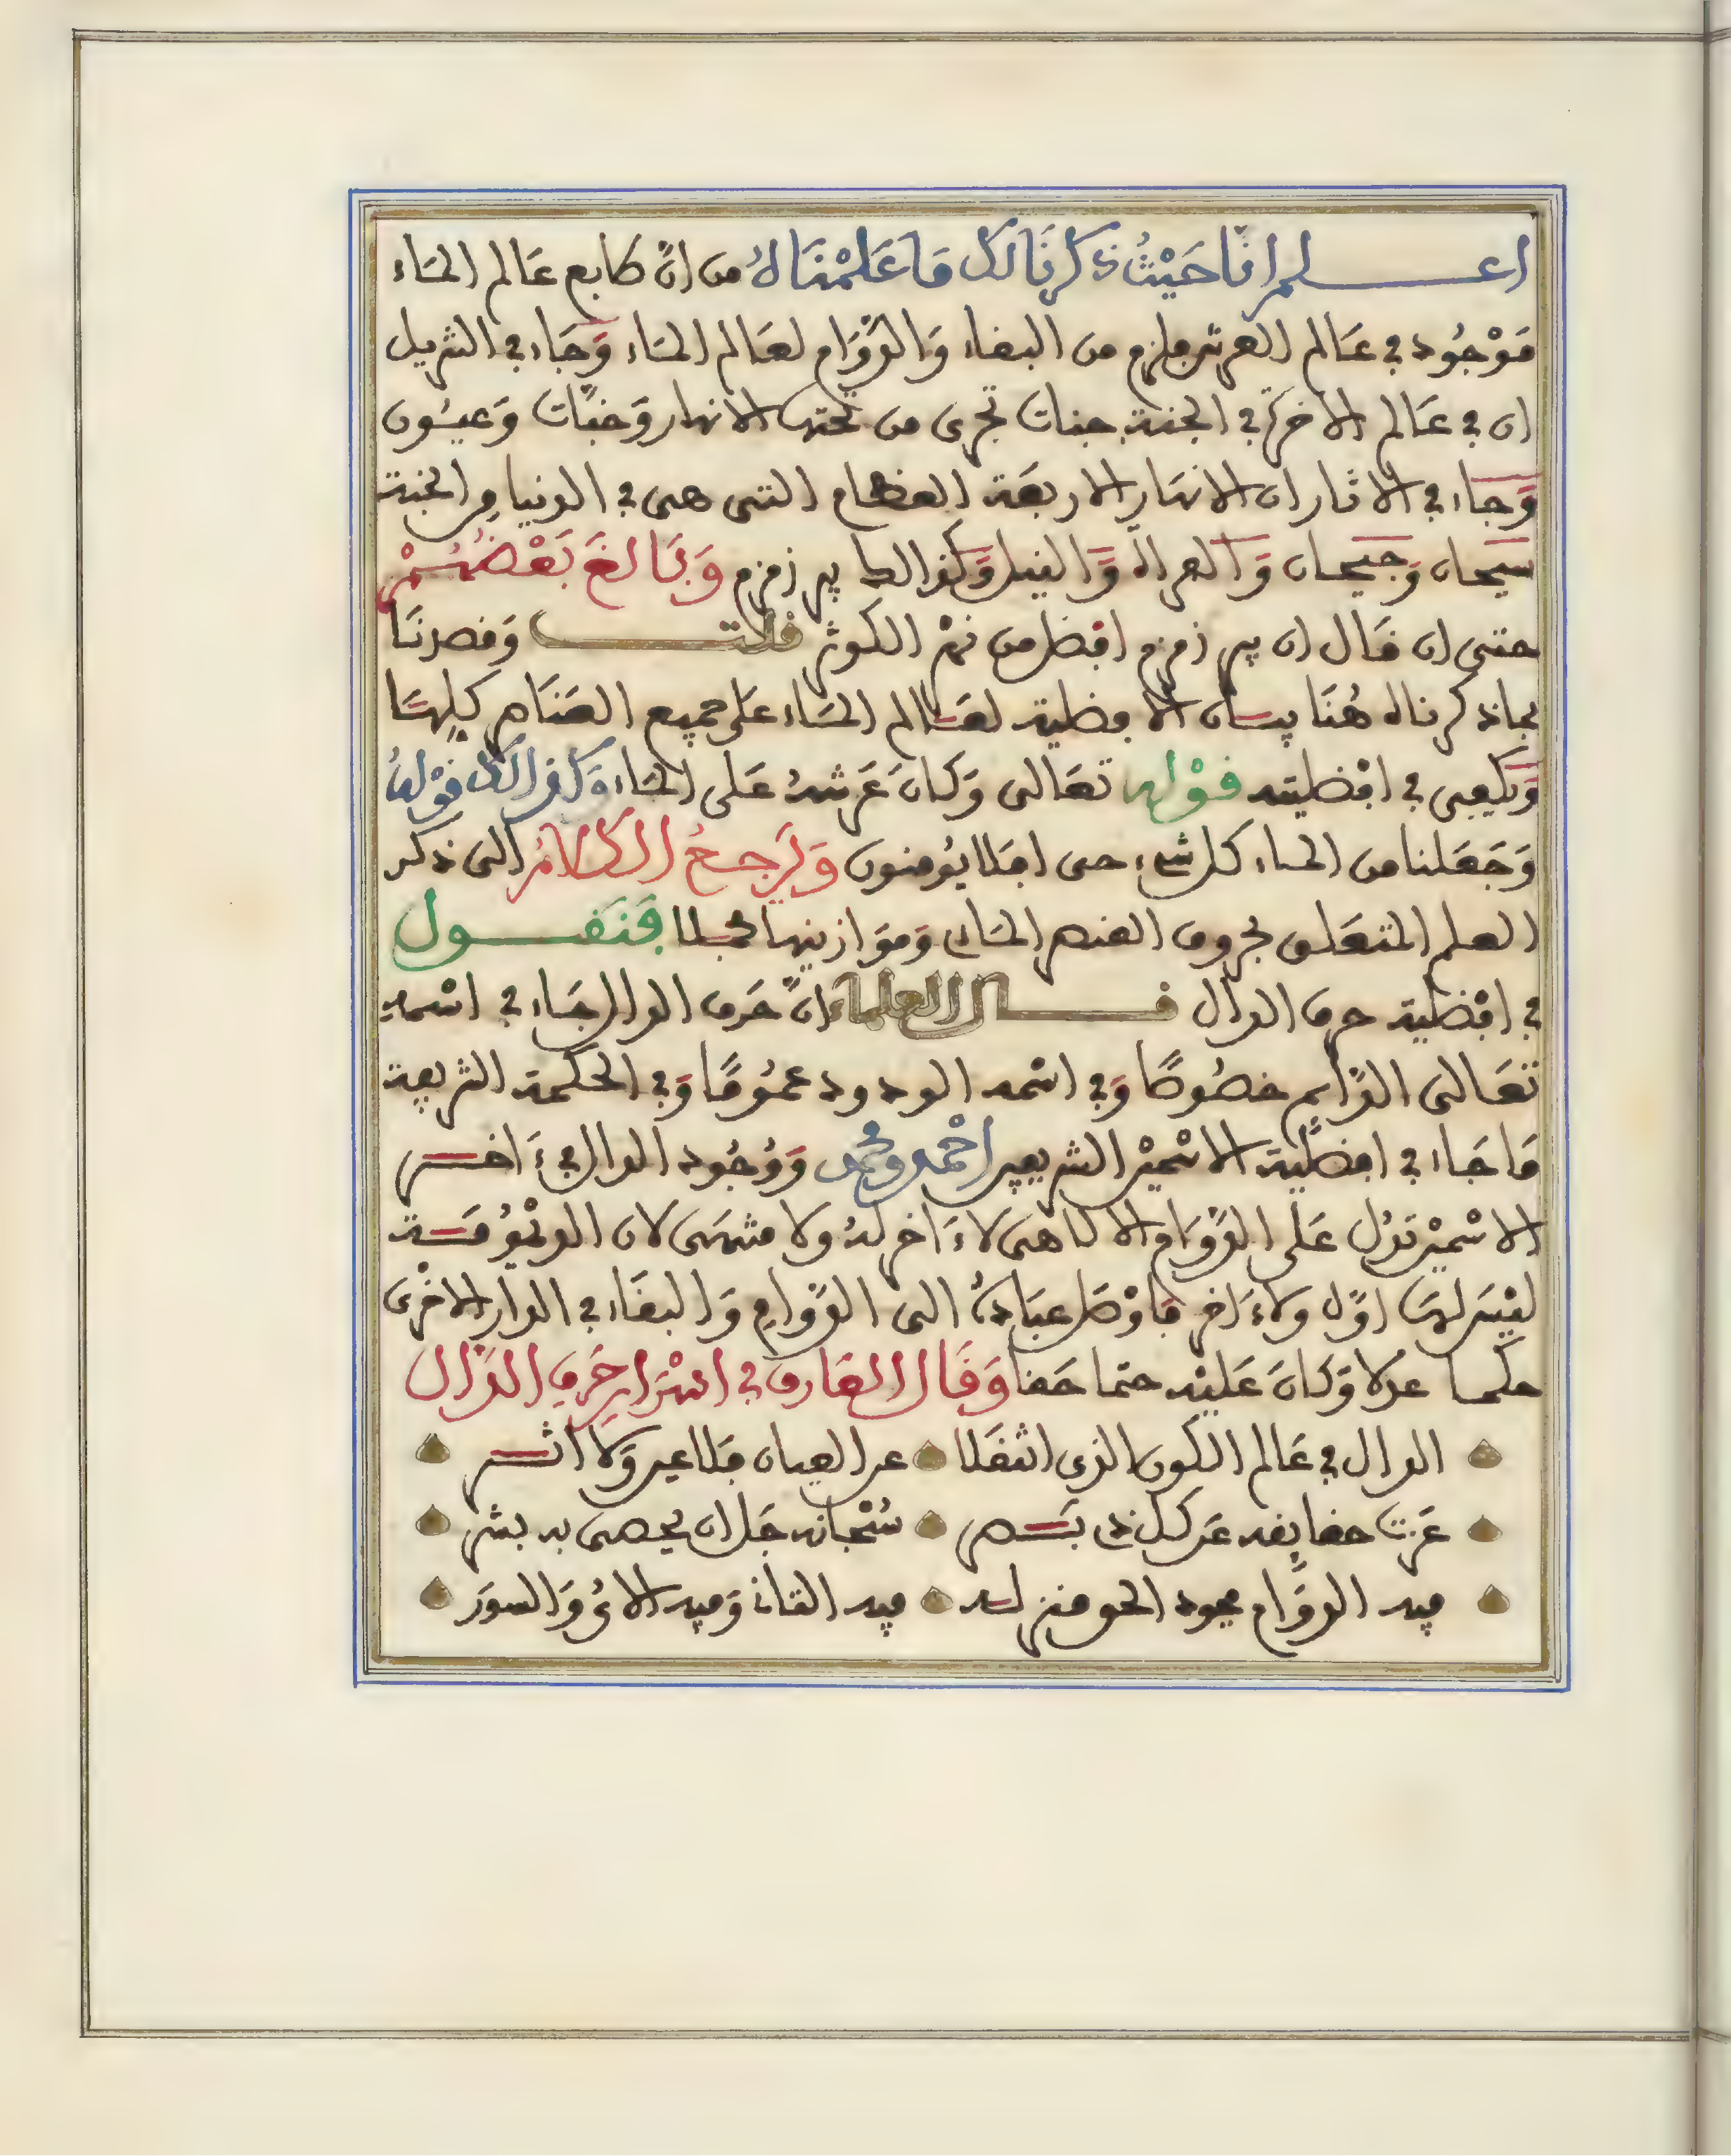 اعلم انا حيث ذكرنا لك ما علمناه من ان طابع عالم الماء
موجود في عالم العرش ملزم من البقاء والدوام لعالم الماء وجاء في التنزيل
ان في عالم الاخرة في الجنة جنات تجري من تحتها الانهار وجنات وعيون
وجاء في الاثار ان الانهار الاربعة العظام التي هي في الدنيا من الجنة
سيحان وجيحان والفرات والنيل وكذالك بير زمزم وبالغ بعضهم
حتى ان قال ان بير زمزم افضل من نهر الكوثر قلت وقصدنا
بما ذكرناه هنا بيان الافضلية لعالم الماء على جميع العناصر كلها
ويكفي في افضليته قوله تعالى وكان عرشه على الماء وكذالك قوله
وجعلنا من الماء كل شيء حي افلا يومنون ولنرجع الكلام الى ذكر
العلم المتعلق بحروف العنصر الماءي وموازينها مجملا فنقول
في افضلية حرف الدال قال العلماء ان حرف الدال جاء في اسمه
تعالى الدايم خصوصا وفي اسمه الودود عموما وفي الحكمة الشريفة
ما جاء في افضلية الاسمين الشريفين احمد ومحمد ووجود الدال في ءاخر
الاسمين تدل على الدوام والا تناهى لا ءاخر له ولا منتهى لان الديمومة
ليس لها اول ولا ءاخر فاوصل عباده الى الدوام والبقاء في الدار الاخرى
حكما عدلا وكان عليه حتما حقا وقال العارف في اسرار حرف الدال
الدال في عالم الكون الذي انتقلا عن العيان فلا عين ولا اثر
عزت حقايقه عن كل ذي بصر سبحانه جل ان يحصى به بشر
فيه الدوام فجود الحق منزله فيه المثاني وفيه الاي والسور